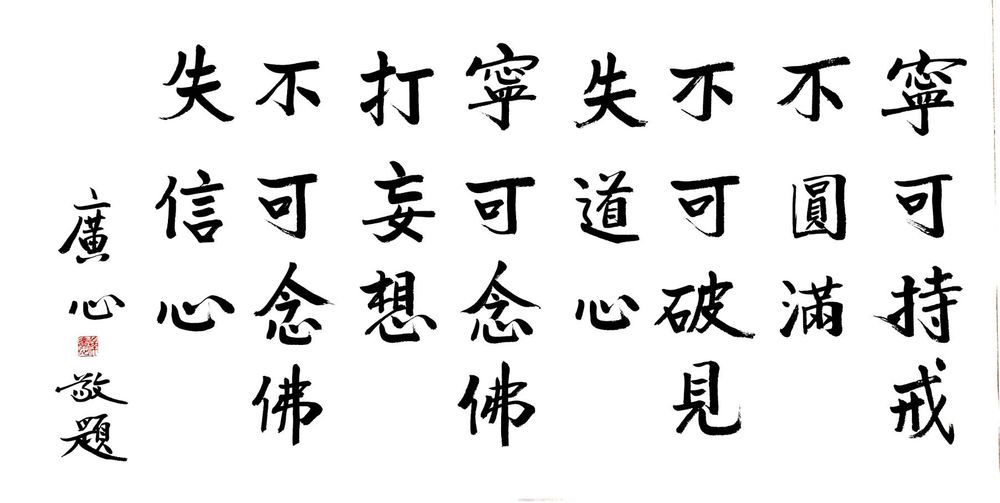 寧可持戒
不圓滿
不可破見
失道心
寧可念佛
打妄想
不可念佛
失信心
廣心敬題